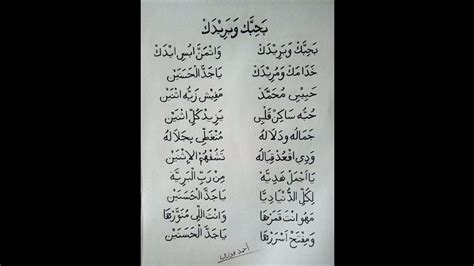 بَحِبَّكْ وَبَرِيْدَكْ
بَحِبَّكْ وَبَرِيْدَكْ وَاتْمَنَّ ابُسِ ايْدَكْ
خَدَامَكْ وَمُرِيْدَكْ يَا جَدَّ الْحَسَنَيْنْ
حَبِيْبِي مُحَمَّدْ مَفِيْشْ زَيُّه اتْنَيْنْ
حُبُّه سَاكِنْ قَلْبِي يِزِيدْ كُلِّ اثْنَيْنْ
جَمَالُه وَدَلَالُه مُتْغَطِّي بِجَلَالُه
وَدِي اقْعُدْ قِبَالُه تَشُفْهُمْ الإِثْنَيْنْ
يَا اجْمَلْ هَدِيَّه مِنْ رَبِّ الْبَرِيَّه
لِكُلِّ الدُّنْيَا دِيَّا يَا جَدَّ الْحَسَنَيْنْ
مَهُو انْتَ قَمَرْهَا وَانْتَ اللِّي مْنَوَّرْهَا
وَمِفْتَحْ اسْرَرْهَا يَا جَدَّ الْحَسَنَيْنْ
أحمد فوزى